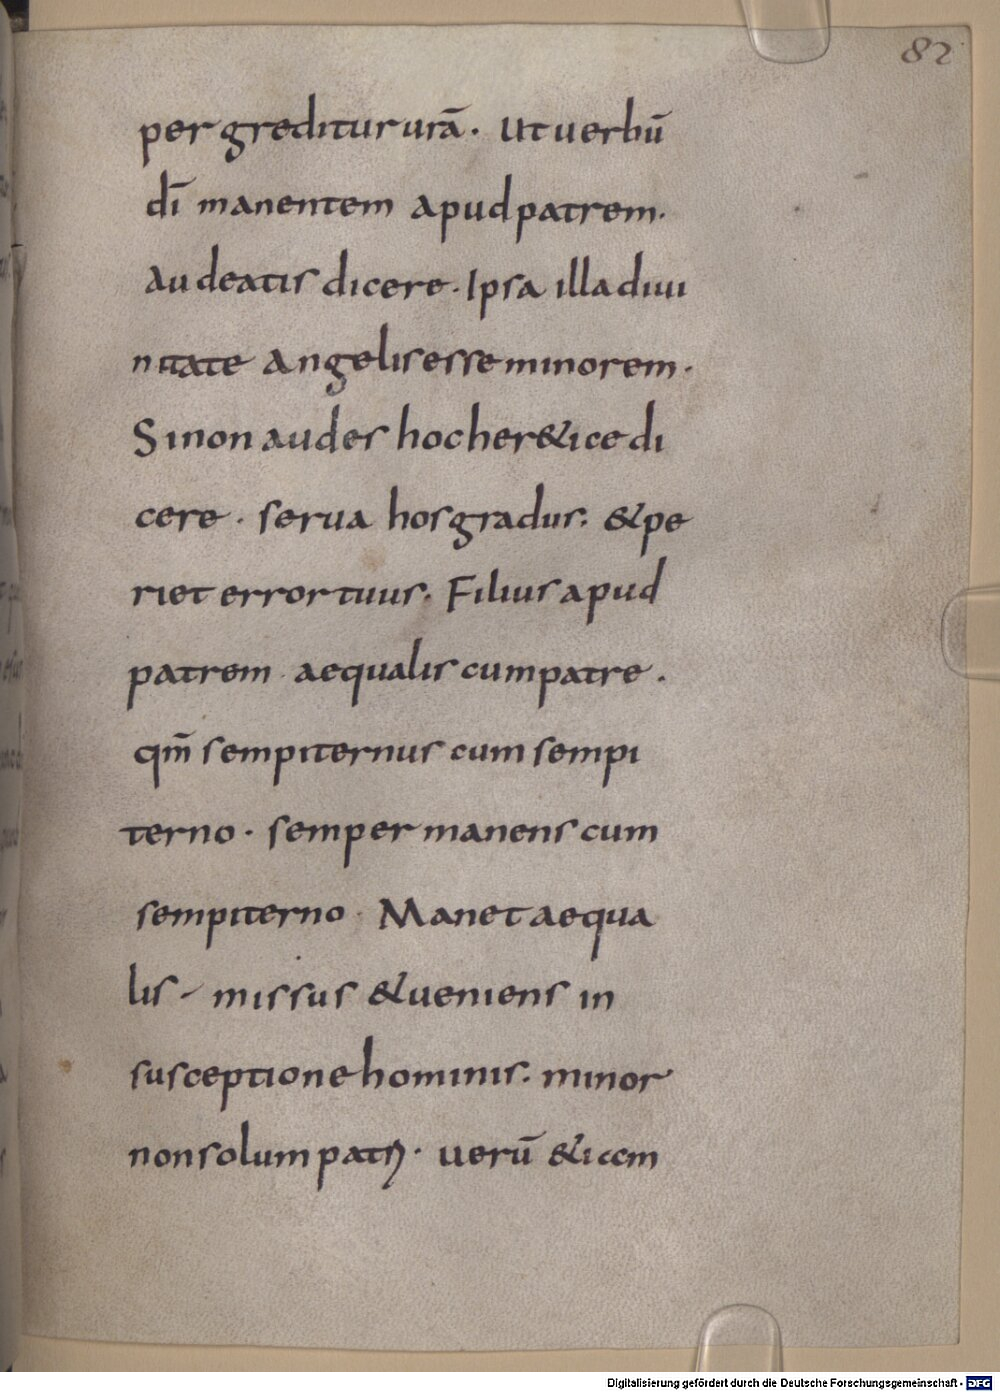 82
pergreditur urā. Ut uerbū
dī manentem apud patrem.
Audeatis dicere. Ipsa illa diui
nitate angelis esse minorem.
Si non audes hoc her&ice di
cere. serua hos gradus. & pe
riet error tuus. Filius apud
patrem aequalis cum patre.
qm̄ sempiternus cum sempi
terno. semper manens cum
sempiterno. Manet aequa
lis missus & ueniens in
susceptione hominis. minor
non solum patr. uerū &iam
Digitalisierung gefördert durch die Deutsche Forschungsgemeinschaft - DFG